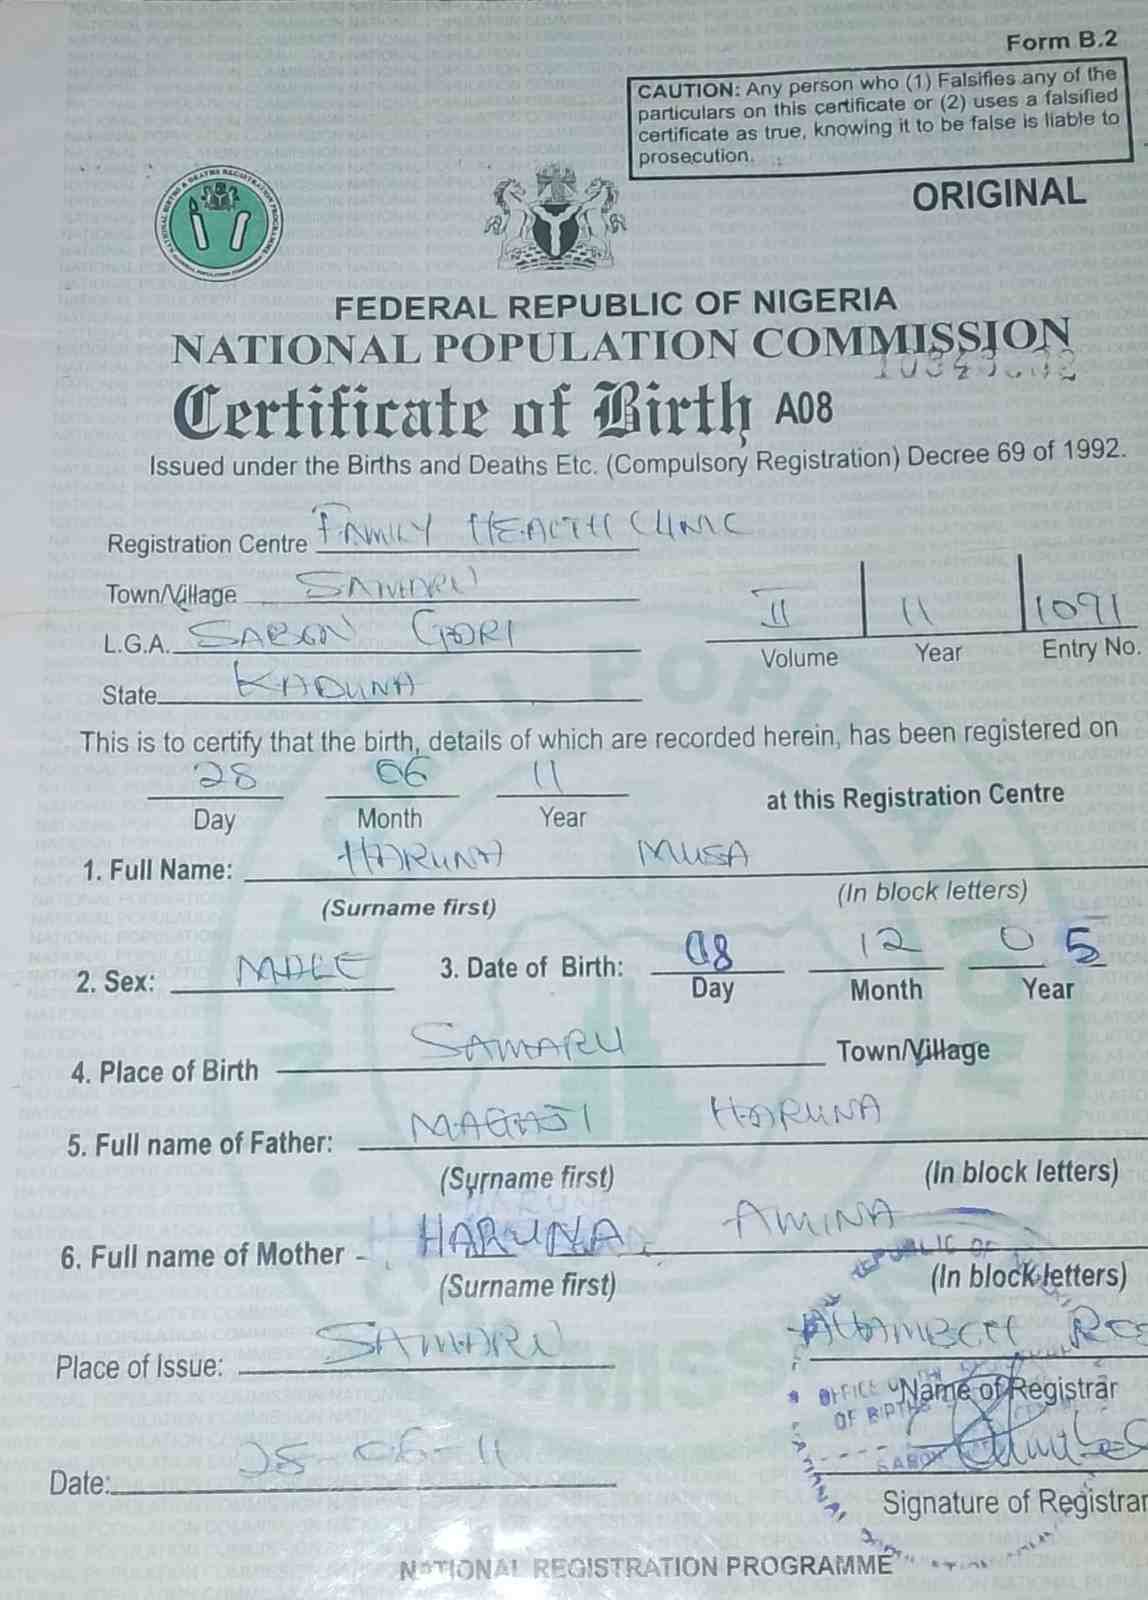 Form B.2
CAUTION: Any person who (1) Falsifies any of the
particulars on this certificate or (2) uses a falsified
certificate as true, knowing it to be false is liable to
prosecution.
ORIGINAL
FEDERAL REPUBLIC OF NIGERIA
NATIONAL POPULATION COMMISSION
Certificate of Birth A08
Issued under the Births and Deaths Etc. (Compulsory Registration) Decree 69 of 1992.
Registration Centre FAMILY HEALTH CLINIC
Town/Village SAMARU
L.G.A. SABON GARI
State KADUNA
II 11 1091
Volume Year Entry No.
This is to certify that the birth, details of which are recorded herein, has been registered on
28 06 11
Day Month Year at this Registration Centre
1. Full Name: HARUNA MUSA
(Surname first) (In block letters)
2. Sex: MALE 3. Date of Birth: 08 12 05
Day Month Year
4. Place of Birth SAMARU Town/Village
5. Full name of Father: MAGAJI HARUNA
(Surname first) (In block letters)
6. Full name of Mother HARUNA AMINA
(Surname first) (In block letters)
Place of Issue: SAMARU
Name of Registrar
Date: 28-06-11
Signature of Registrar
NATIONAL REGISTRATION PROGRAMME